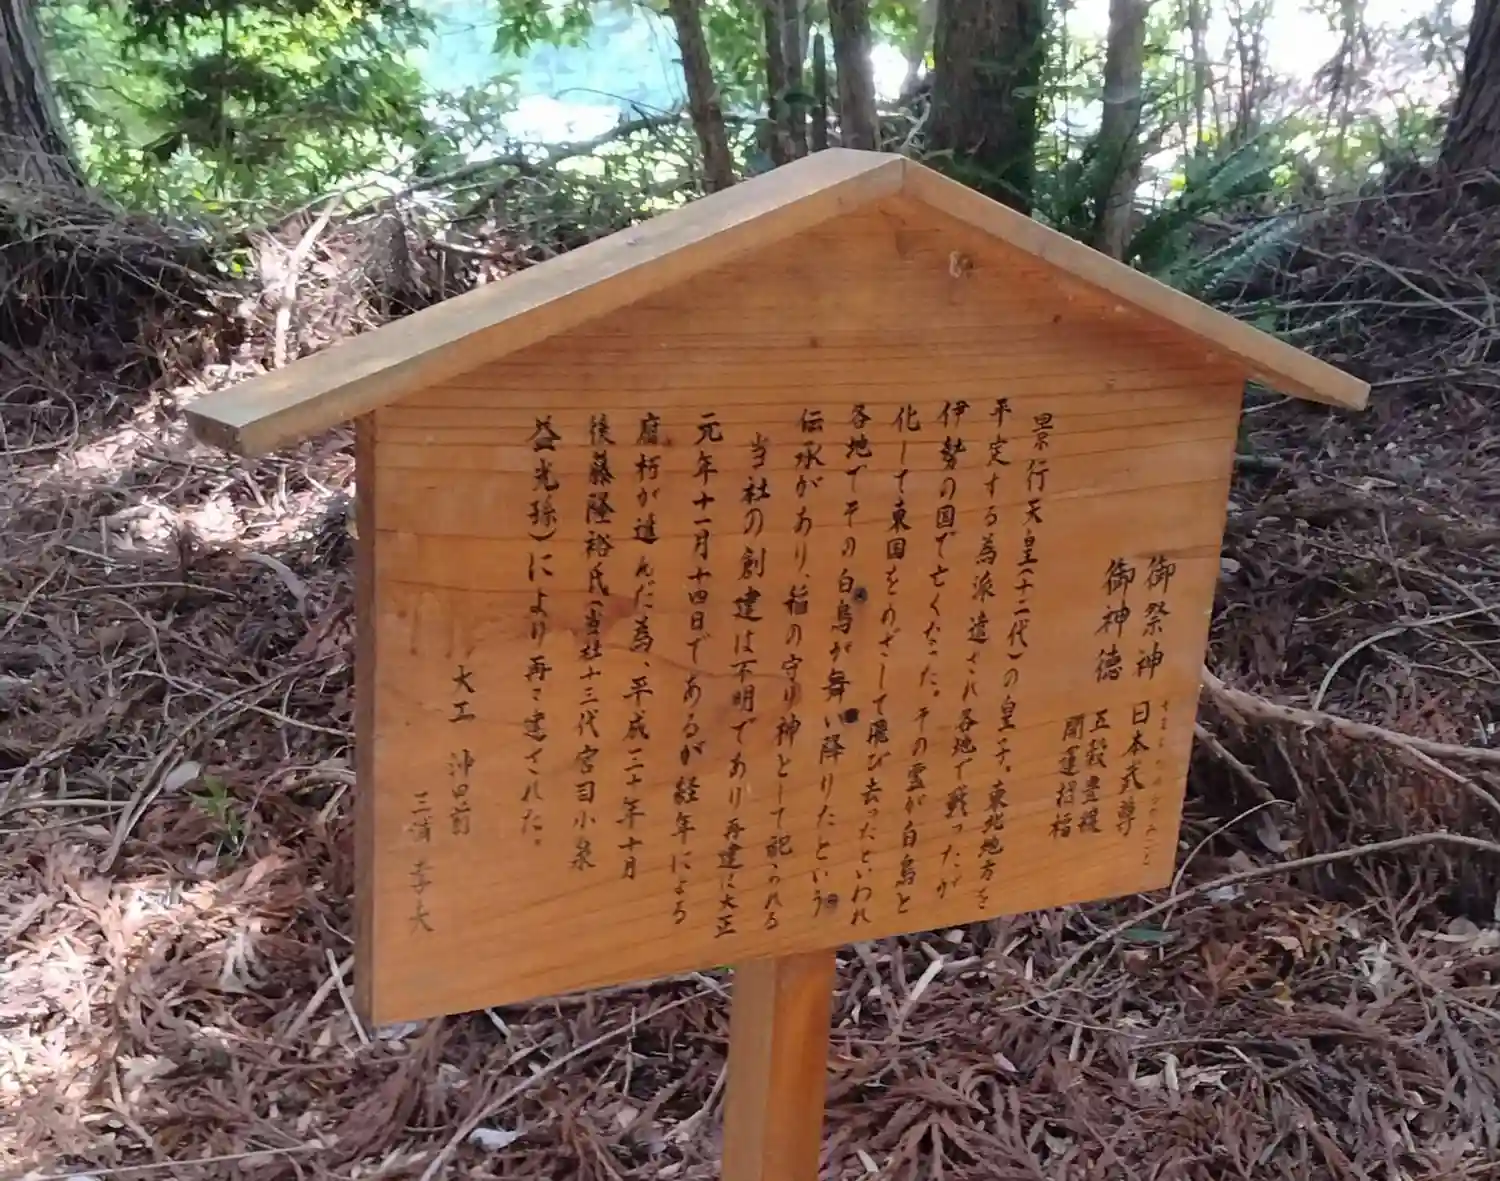 御祭神 日本武尊
やまとたけるのみこと
御神徳 五穀豊穣
開運招福
景行天皇(十二代)の皇子。東北地方を
平定する為派遣され各地で戦ったが
伊勢の国で亡くなった。その霊が白鳥と
化して東国をめざして飛び去ったといわれ
各地でその白鳥が舞い降りたという
伝承があり、稲の守り神として祀られる
当社の創建は不明であり再建は大正
元年十一月十四日であるが経年による
腐朽が進んだ為、平成二十年十月
後藤隆裕氏(当社十三代宮司小泉
益光孫)により再々建された。
大工 沖田前
三浦 孝夫